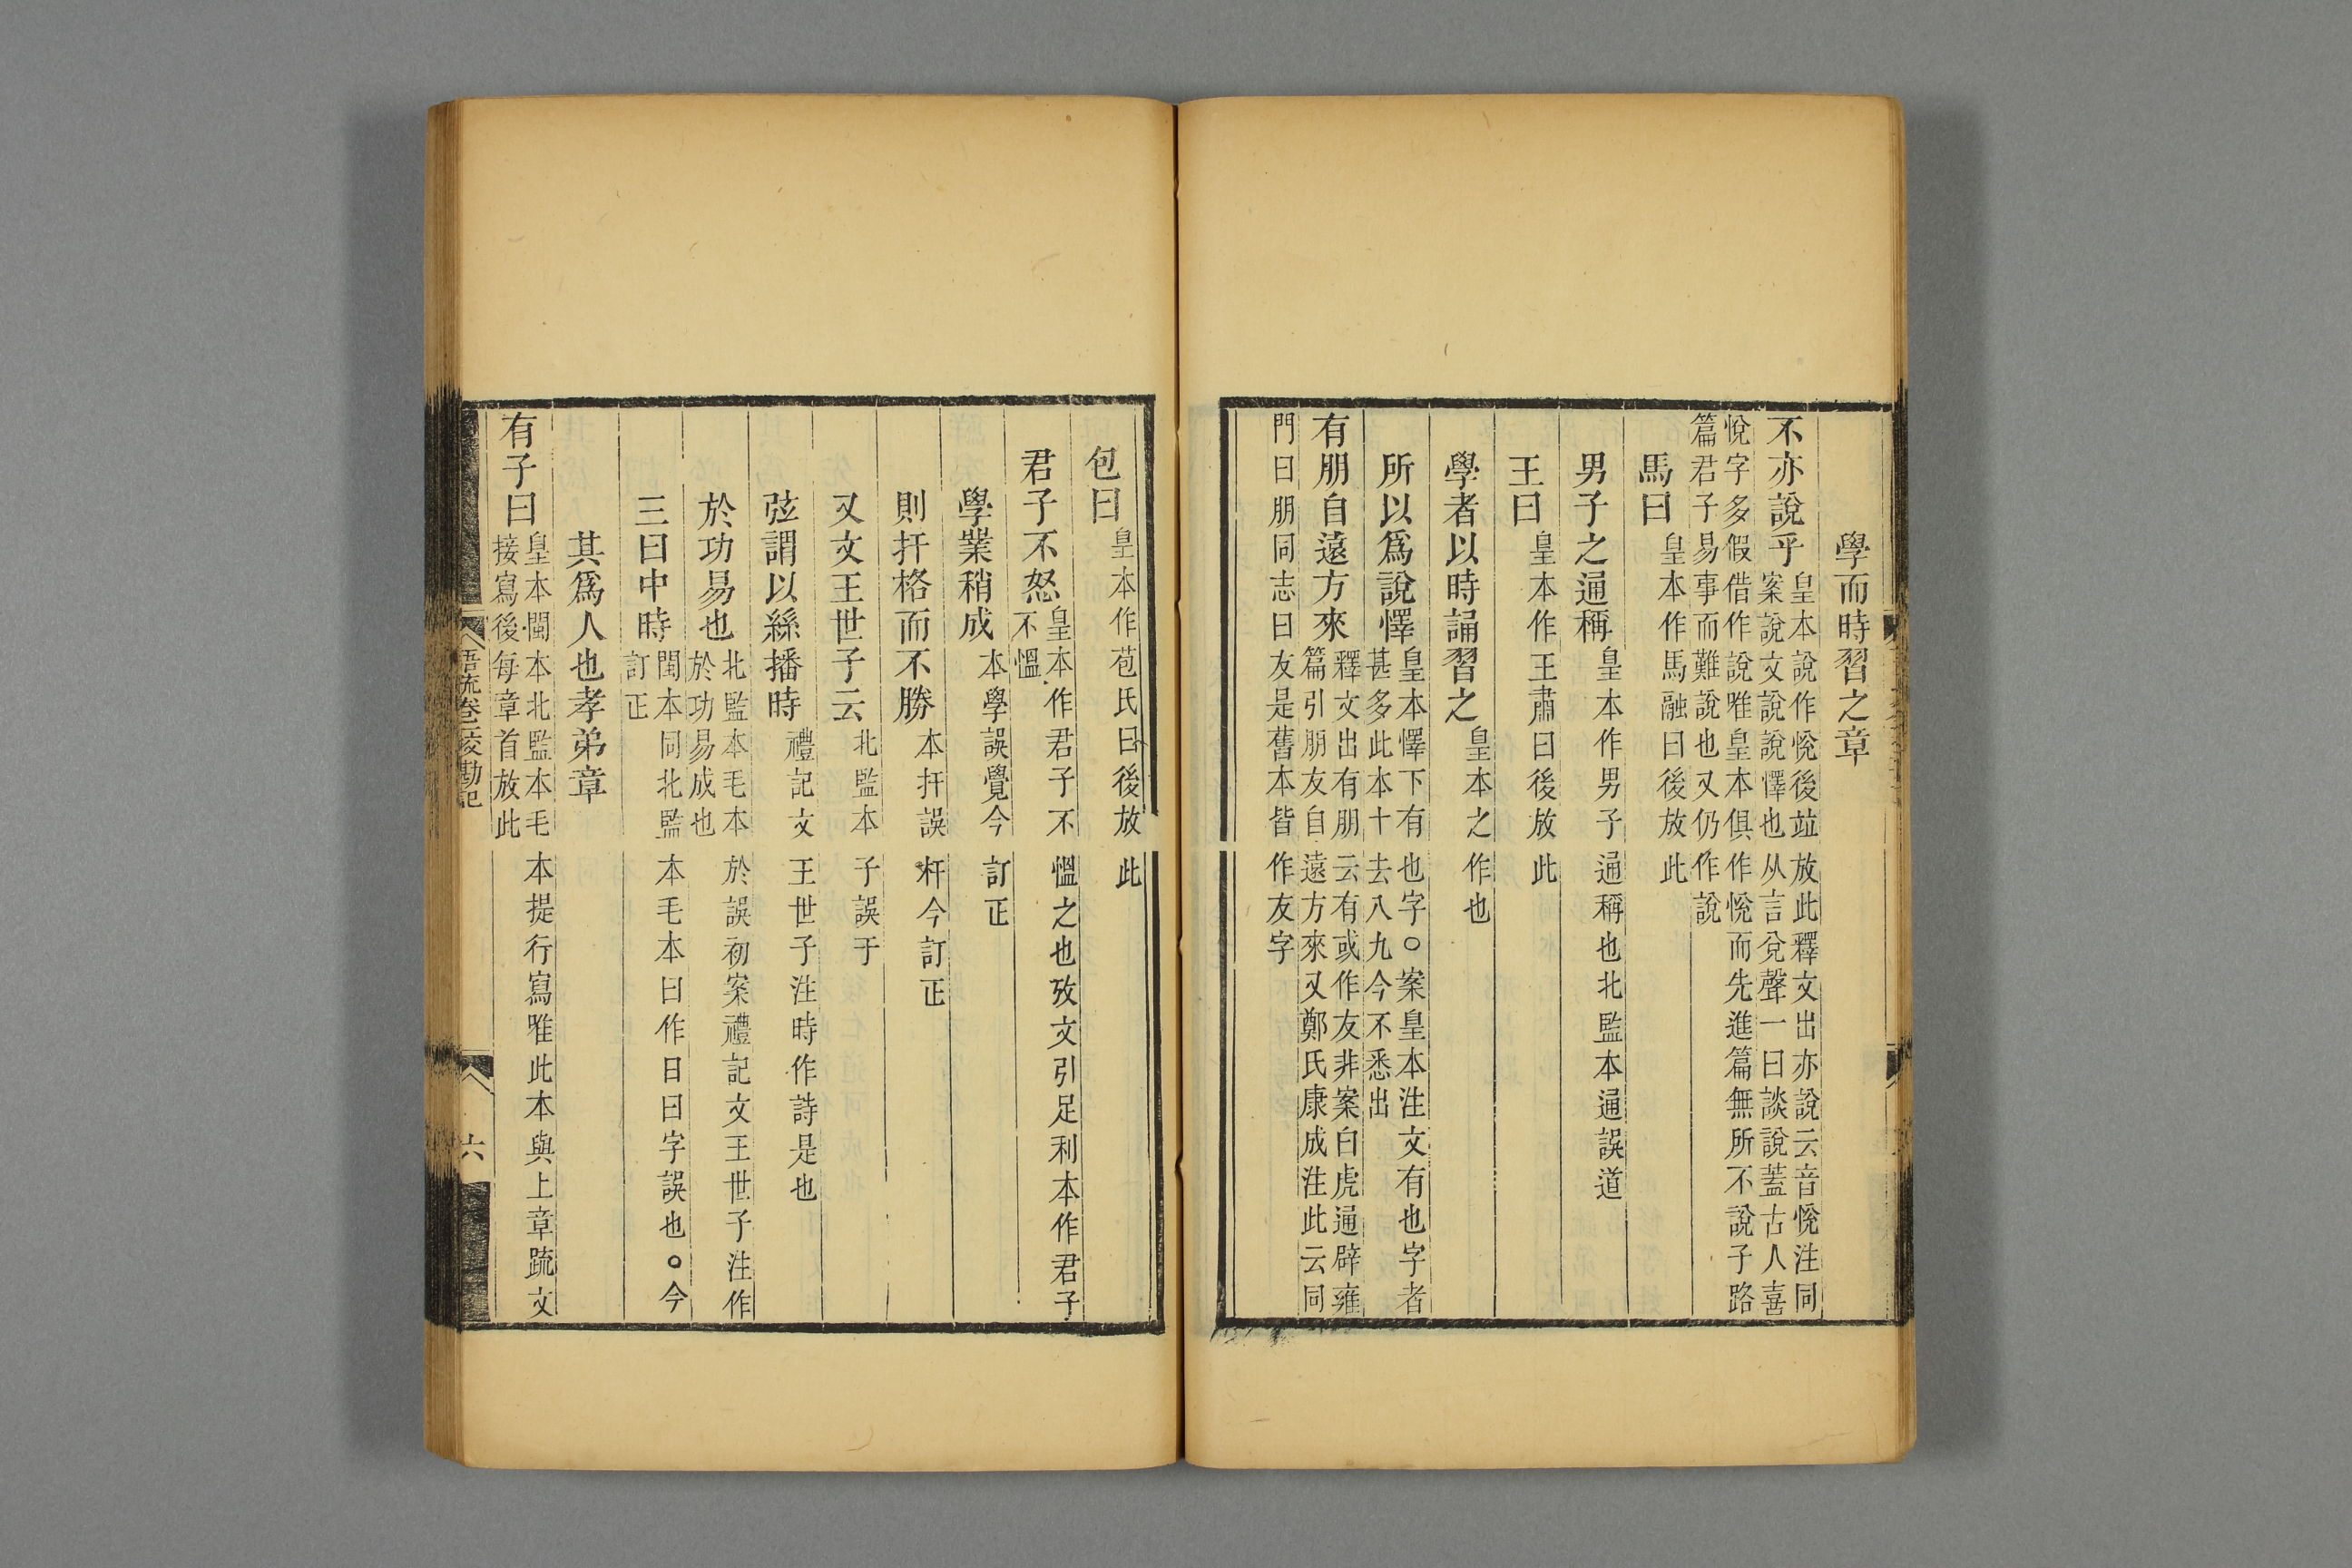 學而時習之章
不亦說乎皇本說作悅後竝放此釋文出亦說云音悅注同
案說文說說懌也从言兌聲一曰談說蓋古人喜
悅字多假借作說唯皇本俱作悅而先進篇無所不說子路
篇君子易事而難說也又仍作說
馬曰皇本作馬融曰後放此
男子之通稱皇本作男子通稱也北監本通誤道
王曰皇本作王肅曰後放此
學者以時誦習之皇本之作也
所以爲說懌皇本懌下有也字○案皇本注文有也字者
甚多此本十去八九今不悉出
有朋自遠方來釋文出有朋云有或作友非案白虎通辟雍
篇引朋友自遠方來又鄭氏康成注此云同
門曰朋同志曰友是舊本皆作友字
包曰皇本作苞氏曰後放此
君子不怒皇本作君子不慍之也攷文引足利本作君子
不慍
學業稍成本學誤覺今訂正
則扞格而不勝本扞誤杆今訂正
又文王世子云北監本子誤于
弦謂以絲播時禮記文王世子注時作詩是也
於功易也北監本毛本於誤初案禮記文王世子注作
於功易成也
三曰中時閩本同北監本毛本曰作日曰字誤也○今
訂正
其爲人也孝弟章
有子曰皇本閩本北監本毛本提行寫唯此本與上章䟽文
接寫後每章首放此
疏卷挍勘記
六